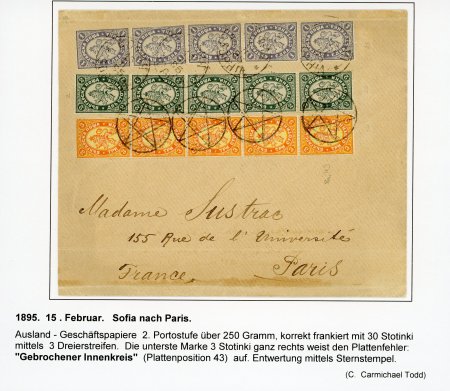 Madame Sustrac
155 Rue de l'Université
Paris
France
1895. 15 . Februar. Sofia nach Paris.
Ausland - Geschäftspapiere 2. Portostufe über 250 Gramm, korrekt frankiert mit 30 Stotinki
mittels 3 Dreierstreifen. Die unterste Marke 3 Stotinki ganz rechts weist den Plattenfehler:
"Gebrochener Innenkreis" (Plattenposition 43) auf. Entwertung mittels Sternstempel.
(C. Carmichael Todd)